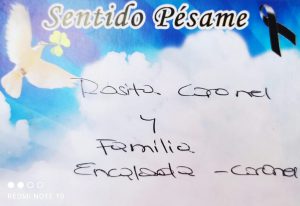 Sentido Pésame
Rosita Coronel
y
Familia
Encalada - Coronel
REDMI NOTE 10